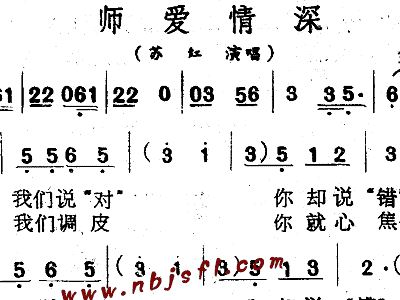 师爱情深
(苏 红 演唱)
61 | 22 061 | 22 0 | 03 56 | 3 35· | 6
5 5 6 5 | (3 1 | 3) 5 1 2 | 3
我们说“对” 你却说“错”
我们调皮 你就心焦
5 6 5 | (3 1 | 3) 5 1 3 | 2·(
www.nbjsfl.com